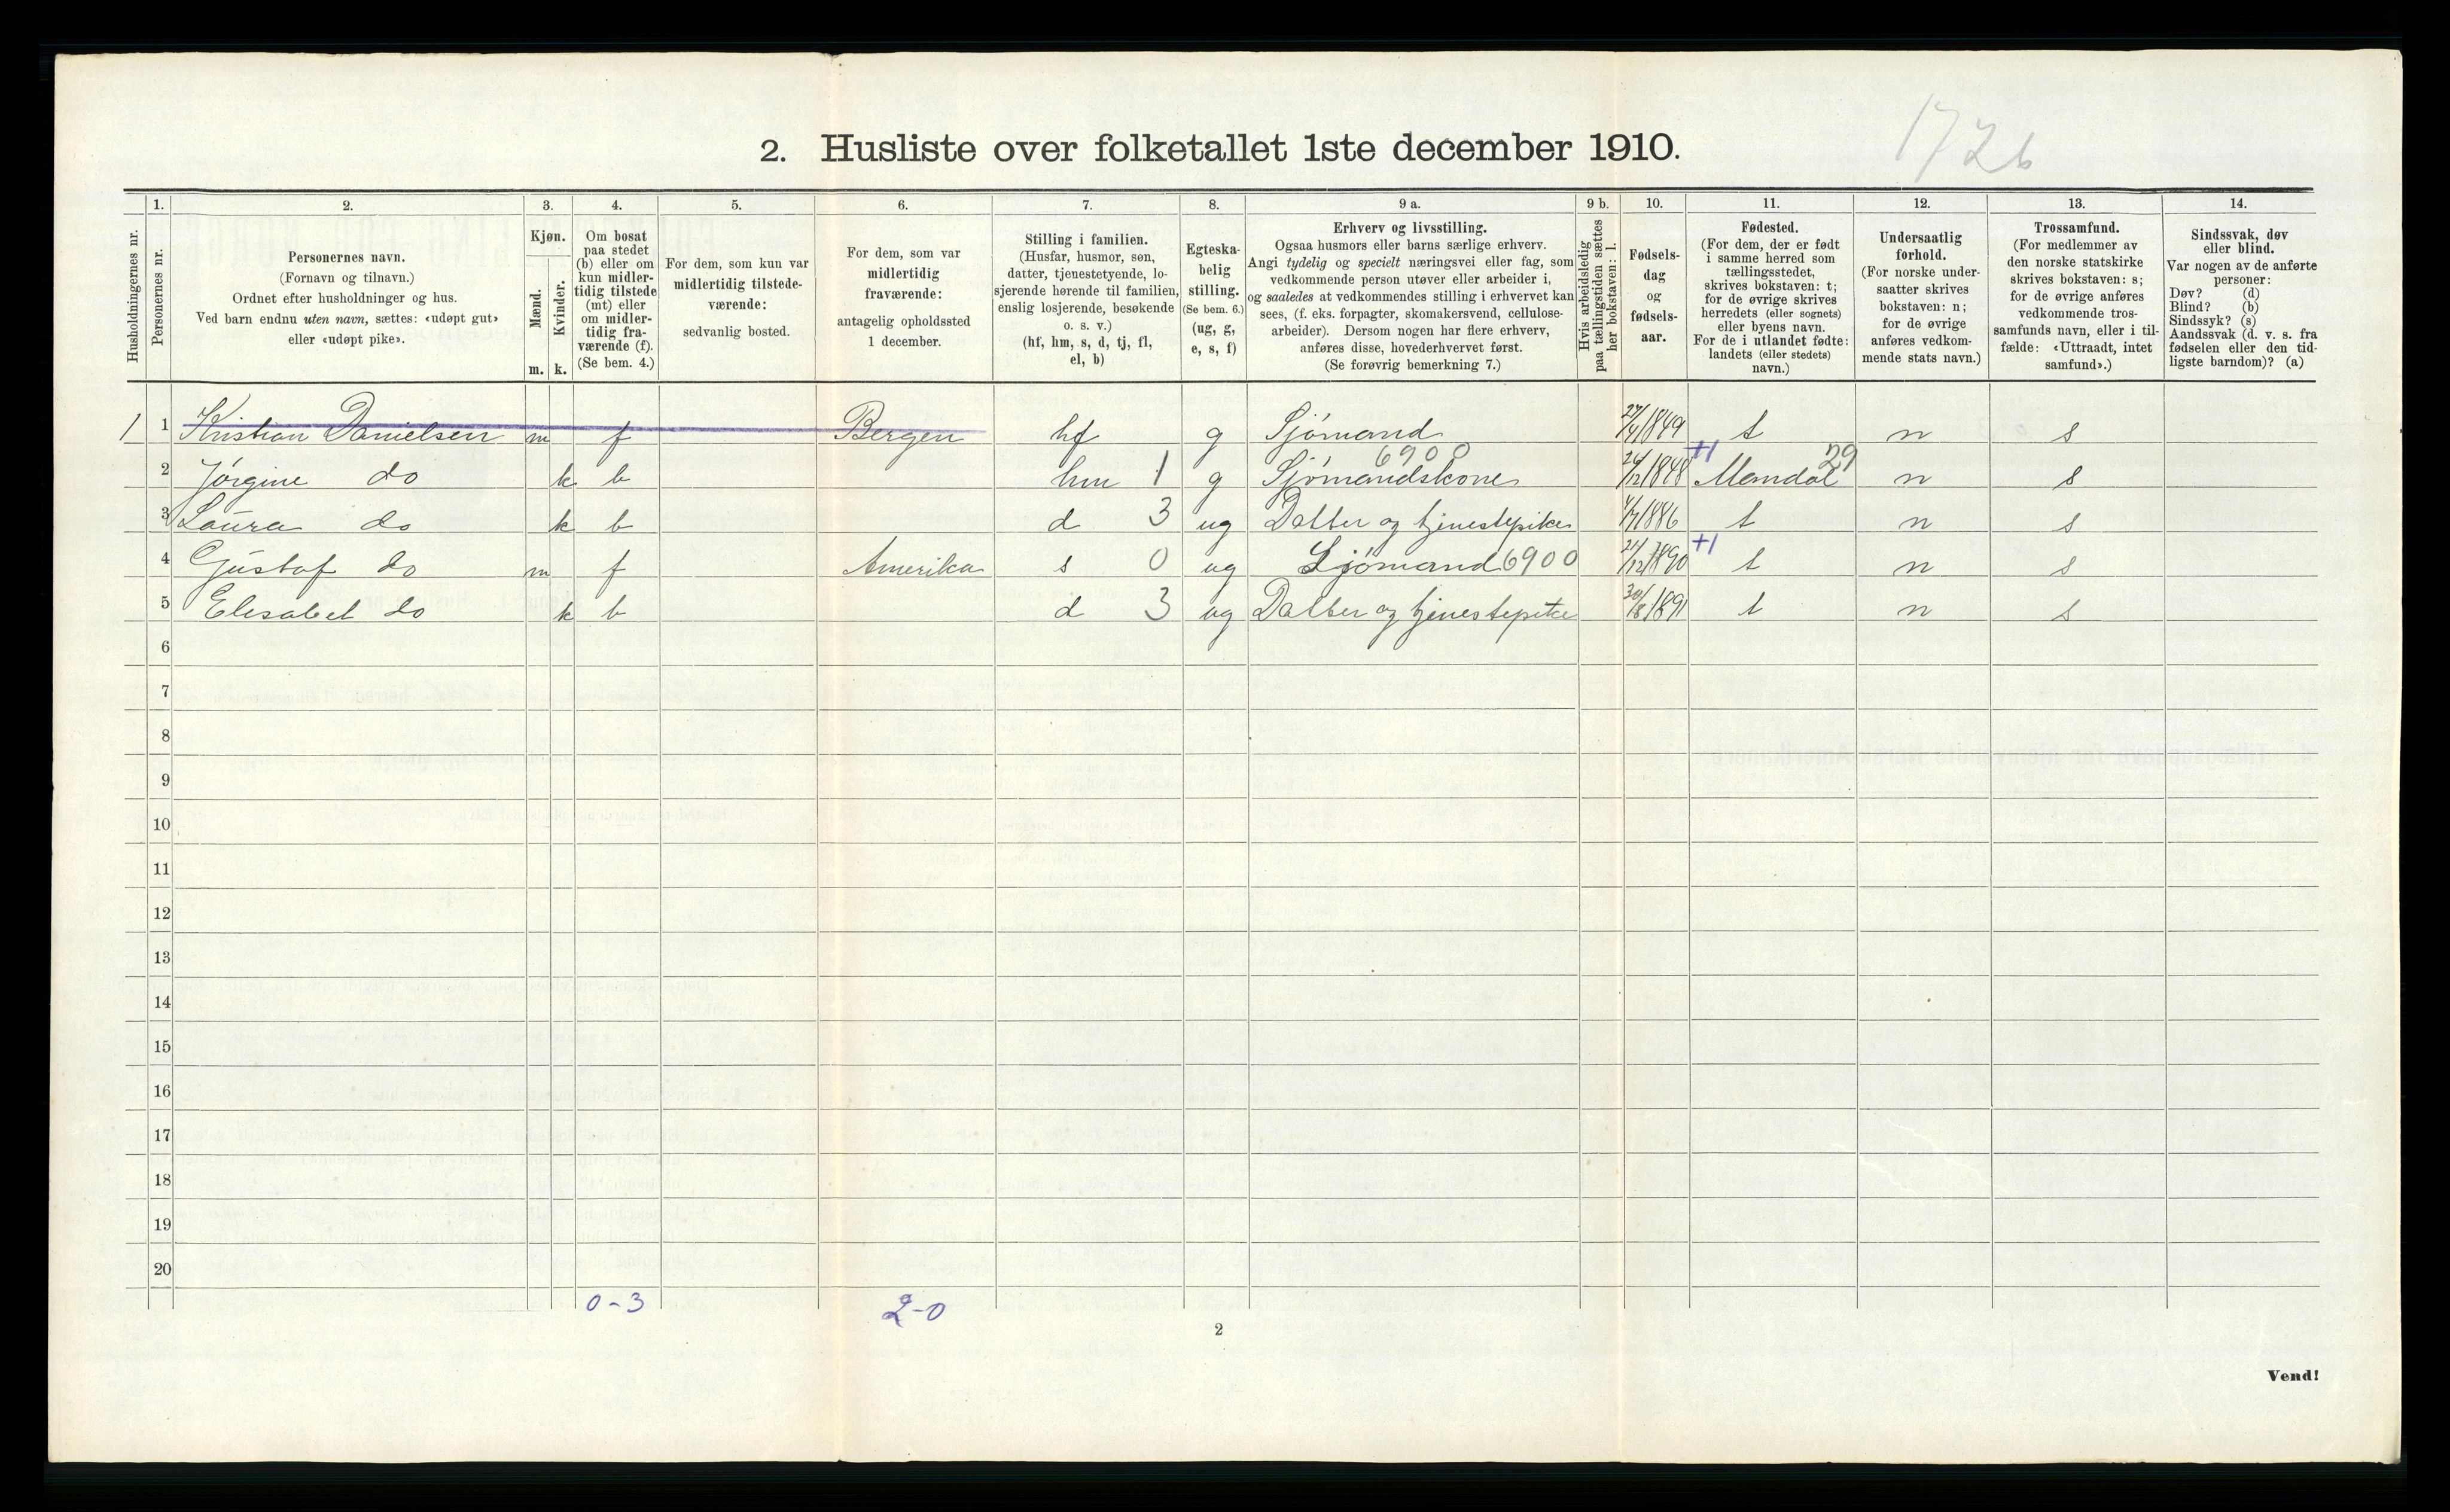 172b
2. Husliste over folketallet 1ste december 1910.
Husholdningernes nr.
1.
Personernes nr.
2.
Personernes navn.
(Fornavn og tilnavn.)
Ordnet efter husholdninger og hus.
Ved barn endnu uten navn, sættes: «udøpt gut»
eller «udøpt pike».
3.
Kjøn.
Mænd.
Kvinder.
m. k.
4.
Om bosat
paa stedet
(b) eller om
kun midler-
tidig tilstede
(mt) eller
om midler-
tidig fra-
værende (f).
(Se bem. 4.)
5.
For dem, som kun var
midlertidig tilstede-
værende:
sedvanlig bosted.
6.
For dem, som var
midlertidig
fraværende:
antagelig opholdssted
1 december.
7.
Stilling i familien.
(Husfar, husmor, søn,
datter, tjenestetyende, lo-
sjerende hørende til familien,
enslig losjerende, besøkende
o. s. v.)
(hf, hm, s, d, tj, fl,
el, b)
8.
Egteska-
belig
stilling.
(Se bem. 6.)
(ug, g,
e, s, f)
9 a.
Erhverv og livsstilling.
Ogsaa husmors eller barns særlige erhverv.
Angi tydelig og specielt næringsvei eller fag, som
vedkommende person utøver eller arbeider i,
og saaledes at vedkommendes stilling i erhvervet kan
sees, (f. eks. forpagter, skomakersvend, cellulose-
arbeider). Dersom nogen har flere erhverv,
anføres disse, hovederhvervet først.
(Se forøvrig bemerkning 7.)
9 b.
Hvis arbeidsledig
paa tællingstiden sættes
her bokstaven: l.
10.
Fødsels-
dag
og
fødsels-
aar.
11.
Fødested.
(For dem, der er født
i samme herred som
tællingsstedet,
skrives bokstaven: t;
for de øvrige skrives
herredets (eller sognets)
eller byens navn.
For de i utlandet fødte:
landets (eller stedets)
navn.)
12.
Undersaatlig
forhold.
(For norske under-
saatter skrives
bokstaven: n;
for de øvrige
anføres vedkom-
mende stats navn.)
13.
Trossamfund.
(For medlemmer av
den norske statskirke
skrives bokstaven: s;
for de øvrige anføres
vedkommende tros-
samfunds navn, eller i til-
fælde: «Uttraadt, intet
samfund».)
14.
Sindssvak, døv
eller blind.
Var nogen av de anførte
personer:
Døv? (d)
Blind? (b)
Sindssyk? (s)
Aandssvak (d. v. s. fra
fødselen eller den tid-
ligste barndom)? (a)
1 1 Kristian Danielsen m f Bergen hf g Sjömand 27/4 1849 t n s
6900 +1 29
2 Jörgine do k b hm 1 g Sjömandskone 24/12 1848 Mandal n s
3 Laura do k b d 3 ug Datter og tjenestepike 4/7 1886 t n s
4 Gustaf do m f Amerika s 0 ug Sjömand 6900 21/12 1890 +1 t n s
5 Elesabet do k b d 3 ug Datter og tjenestepike 30/8 1891 t n s
6
7
8
9
10
11
12
13
14
15
16
17
18
19
20
0-3 2-0
2
Vend!